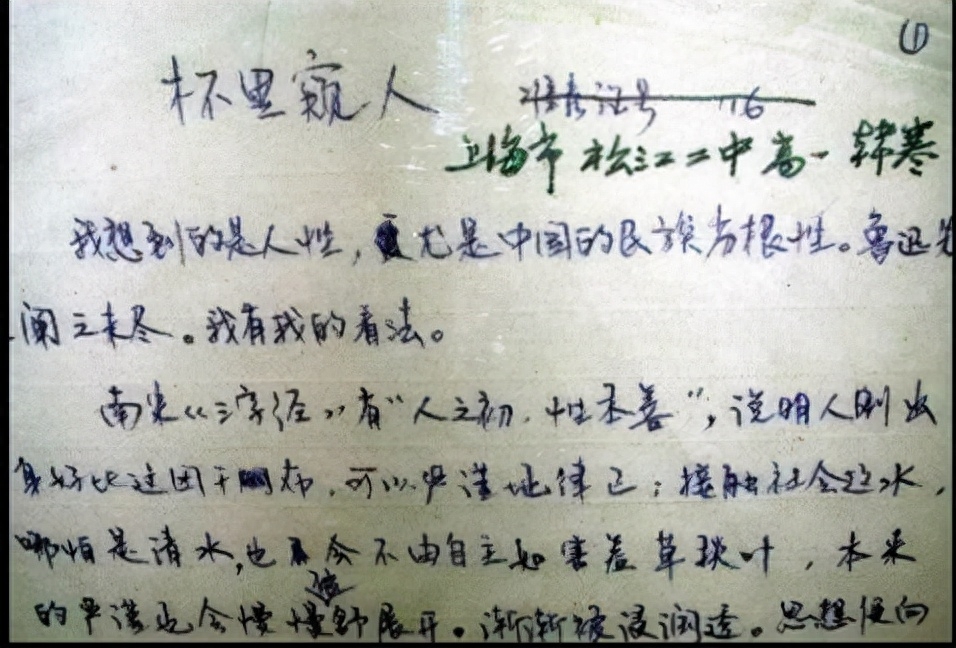 ①
杯里窥人 准考证号
上海市松江二中高一 韩寒
我想到的是人性,尤是中国的民族劣根性。鲁迅先
阐之未尽。我有我的看法。
南宋《三字经》有“人之初,性本善”,说明人刚出
身好比这团干布,可以严谨地律己;接触社会这水,
哪怕是清水,也会不由自主如害羞草叶,本来
的严谨也会慢慢舒展开。渐渐被浸润透。思想便向